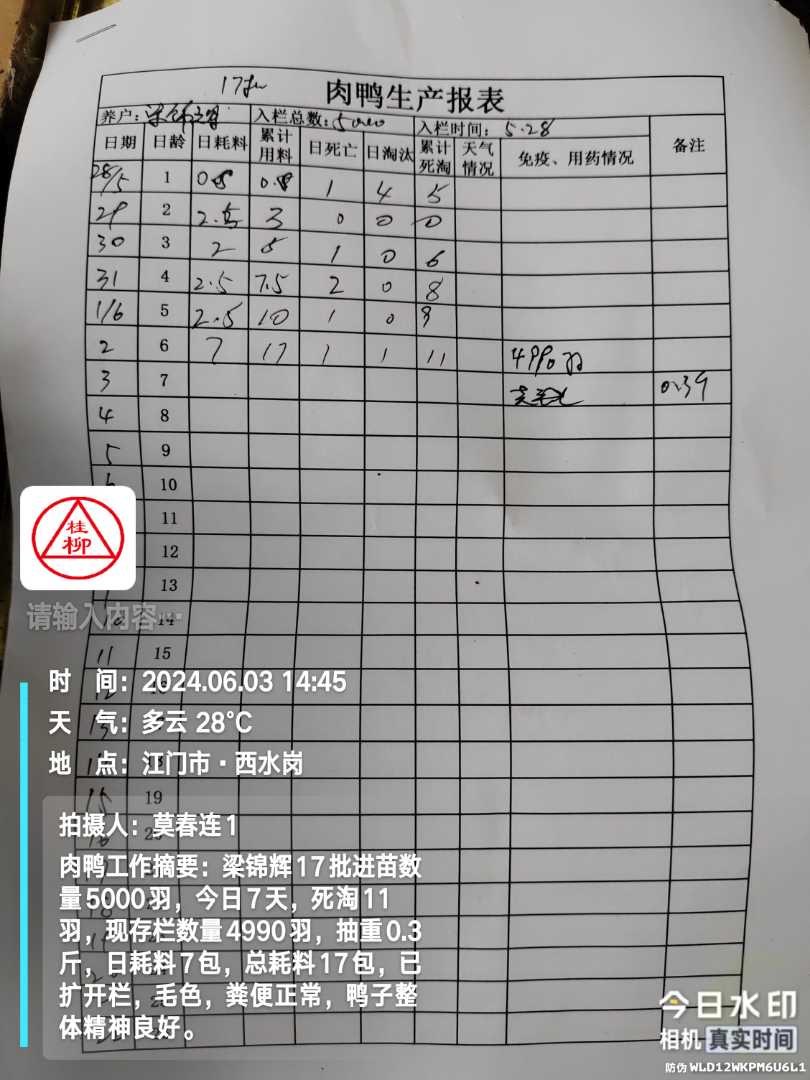 17批
肉鸭生产报表
养户：梁锦辉 入栏总数：5000 入栏时间：5.28 备注
日期 日龄 日耗料 累计用料 日死亡 日淘汰 累计死淘 天气情况 免疫、用药情况
28/5 1 0.8 0.8 1 4 5
29 2 2.5 3 0 0 0
30 3 2 5 1 0 6
31 4 2.5 7.5 2 0 8
1/6 5 2.5 10 1 0 9
2 6 7 17 1 1 11 4990羽
3 7 0.39
4 8
5 9
10
11
12
13
14
11 15
12
13
19
桂柳
请输入内容…
时 间：2024.06.03 14:45
天 气：多云 28°C
地 点：江门市·西水岗
拍摄人：莫春连1
肉鸭工作摘要：梁锦辉17批进苗数
量5000羽，今日7天，死淘11
羽，现存栏数量4990羽，抽重0.3
斤，日耗料7包，总耗料17包，已
扩开栏，毛色，粪便正常，鸭子整
体精神良好。
今日水印
相机 真实时间
防伪 WLD12WKPM6U6L1